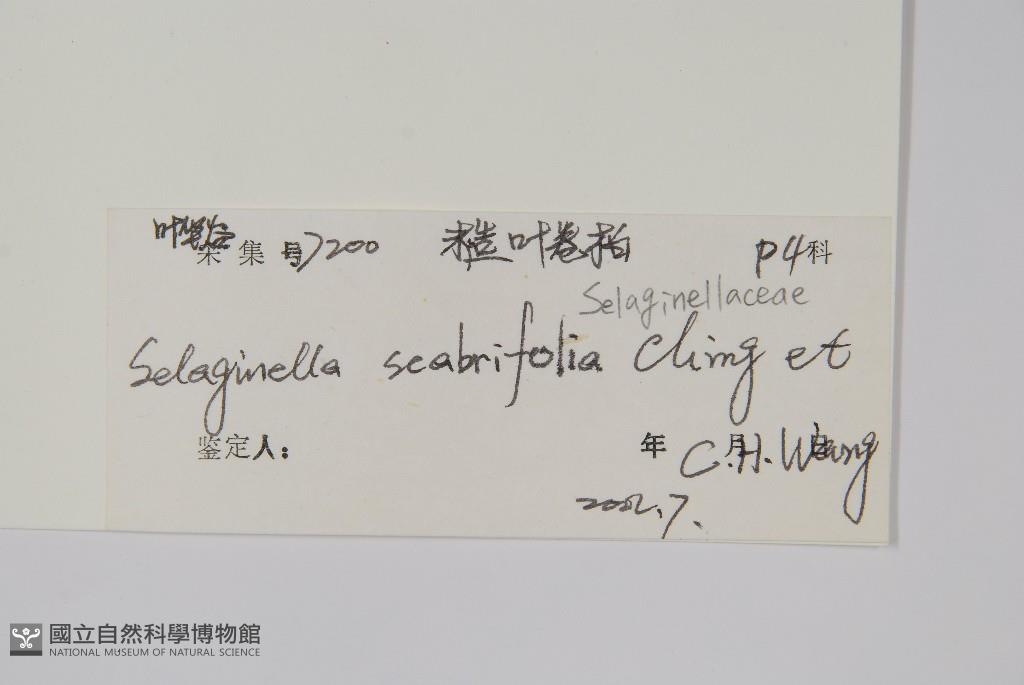 叶华谷
采集号 7200 糙叶卷柏 P4科
Selaginellaceae
Selaginella scabrifolia Ching et
鉴定人： 年 月 日 C.H. Wang
2002.7.
國立自然科學博物館
NATIONAL MUSEUM OF NATURAL SCIENCE